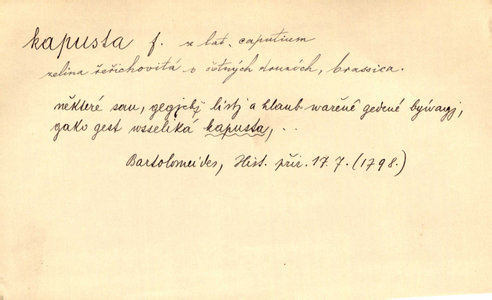 kapusta f. z lat. caputium
zelina řeřichovitá o četných druzích, brassica.
některé sau, gegichž listj a hlaub wařené gedené býwagj,
gako gest wsseliká kapusta, ..
Bartolomeides, Hist. přír. 17.7. (1798.)